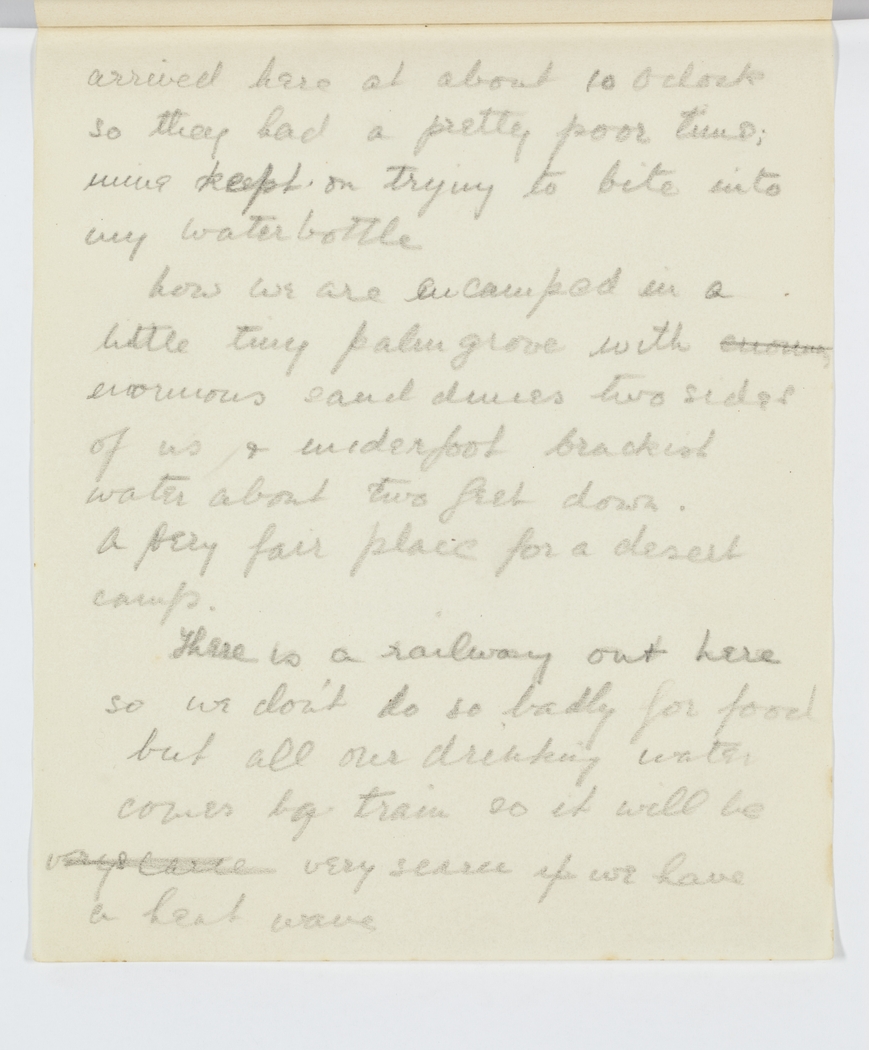 arrived here at about 10 Oclock
so they had a pretty poor time;
mine kept on trying to bite into
my waterbottle
how we are encamped in a
little tiny palm grove with enormous
enormous sand dunes two sides
of us & underfoot brackist
water about two feet down.
A very fair place for a desert
camp.
There is a railway out here
so we don't do so badly for food
but all our drinking water
comes by train so it will be
very scarce very scarce if we have
a heat wave